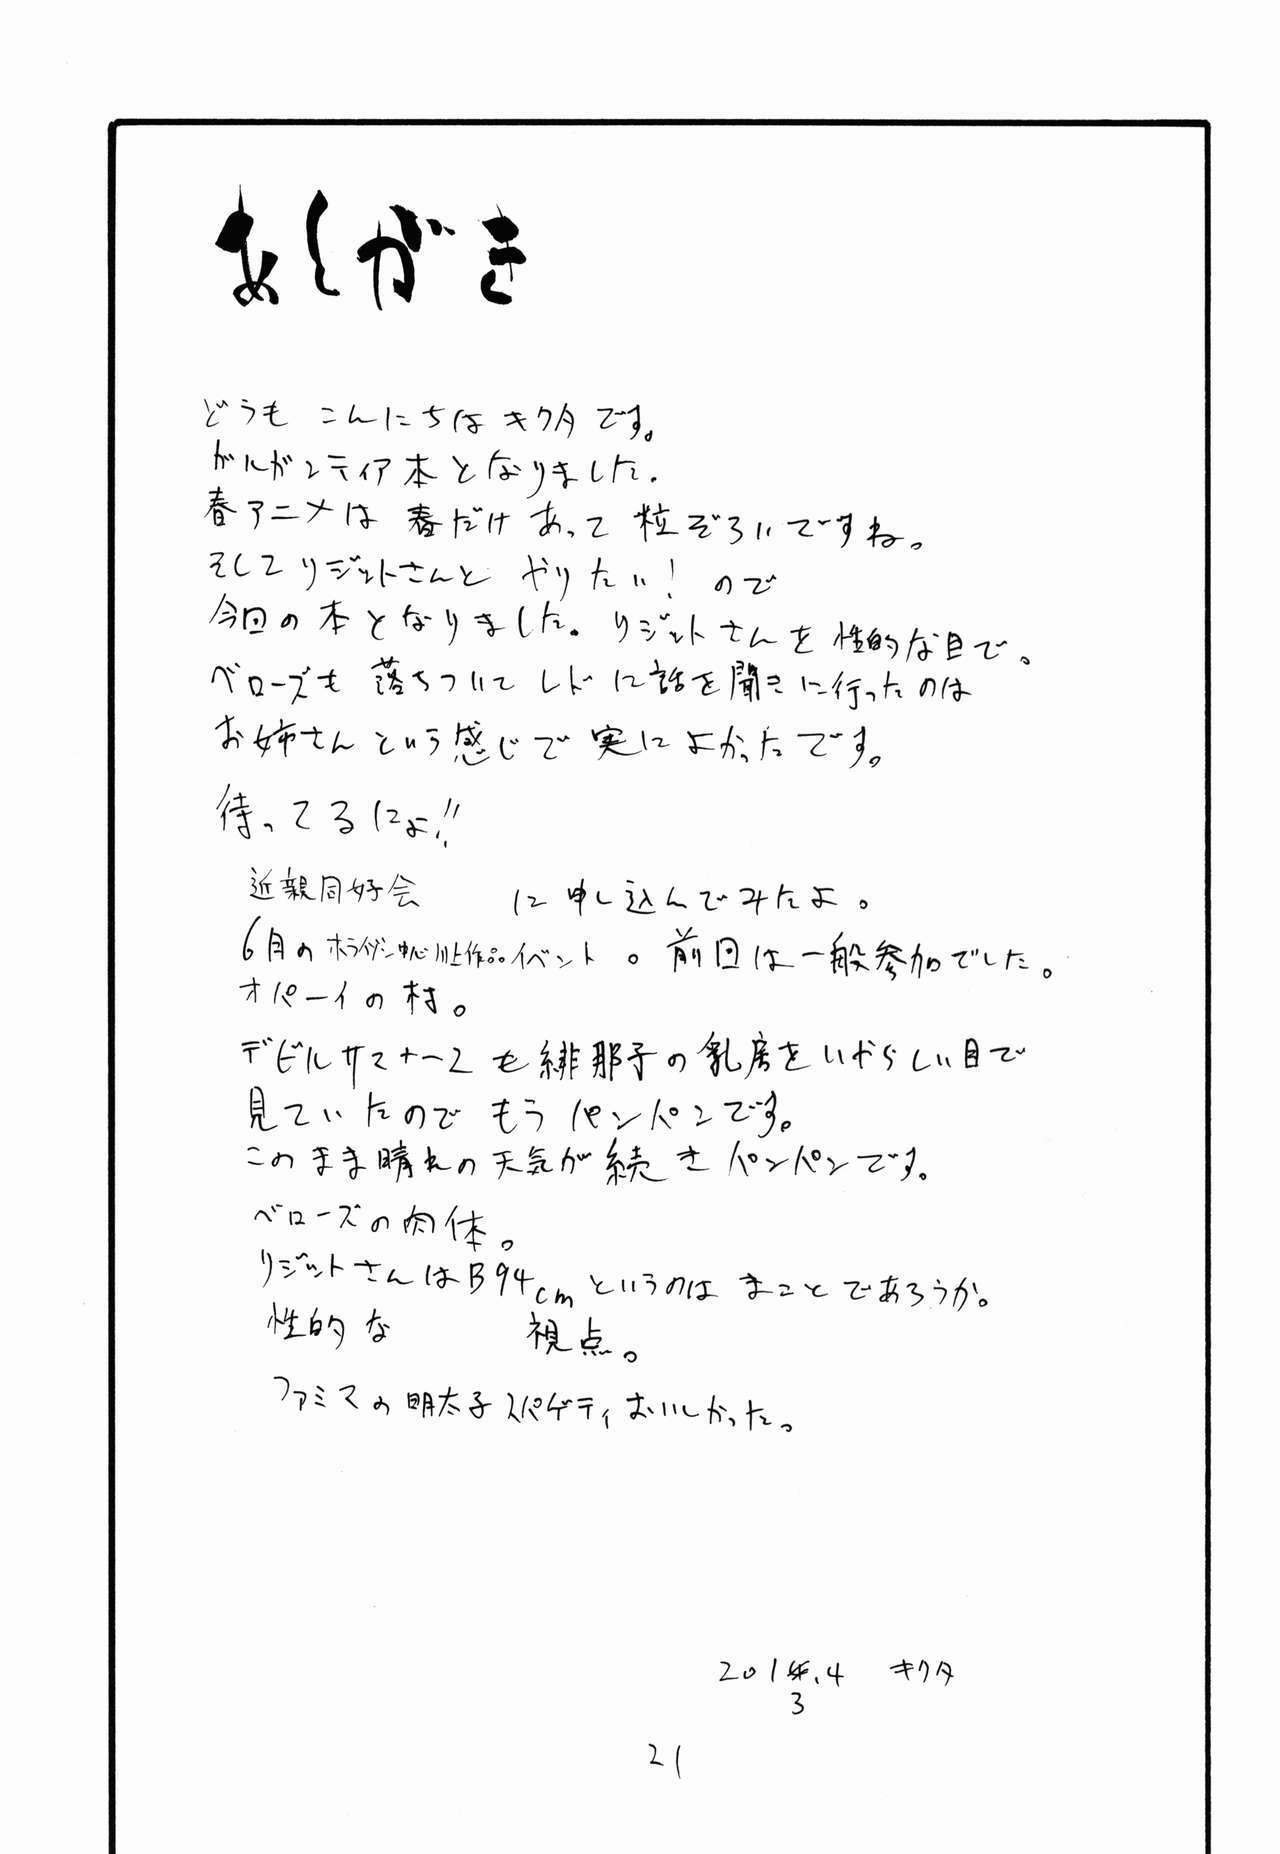 あとがき
どうも こんにちは キクタです。
ガルガンティア本となりました.
春アニメは 春だけあって 粒ぞろいですね。
そしてリジットさんと やりたい! ので
今回の本となりました。リジットさんを性的な目で。
ベローズも 落ちついてレドに話を聞きに行ったのは
お姉さんという感じで実によかったです。
待ってるにょ!!
近親同好会 に申し込んでみたよ。
6月のホライゾン中心川上作品イベント。前回は一般参加でした。
オパーイの村。
デビルサマナー2も緋那子の乳房をいやらしい目で
見ていたのでもうパンパンです。
このまま晴れの天気が続きパンパンです。
ベローズの肉体。
リジットさんはB94cmというのはまことであろうか。
性的な 視点。
ファミマの明太子スパゲティおいしかった。
2013.4 キクタ
21